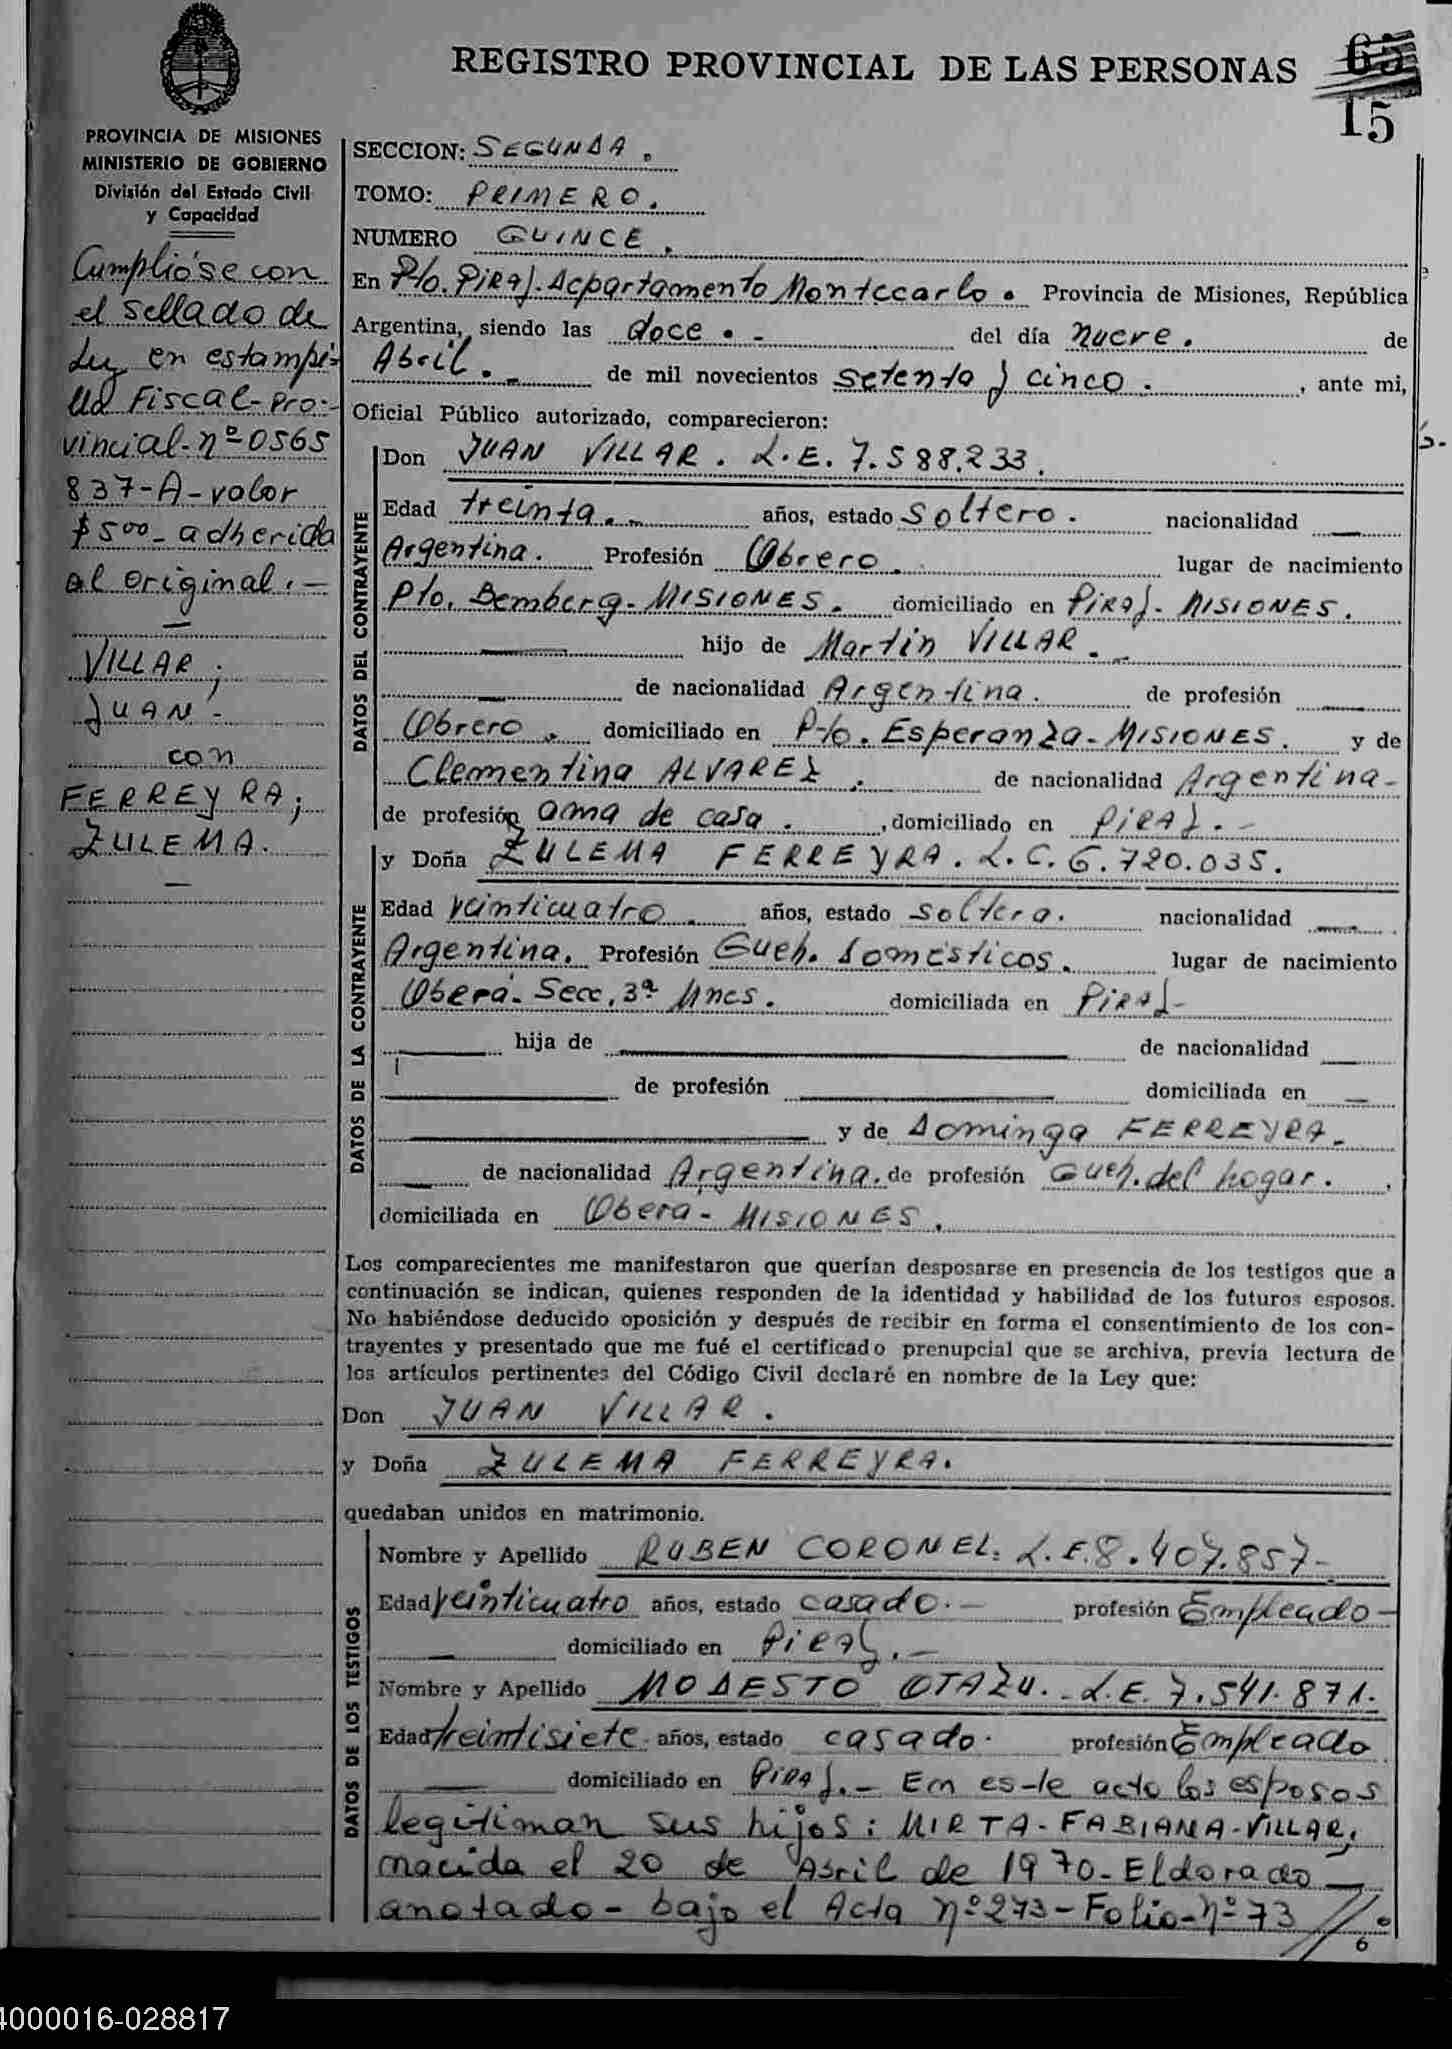 REGISTRO PROVINCIAL DE LAS PERSONAS
65
15
PROVINCIA DE MISIONES
MINISTERIO DE GOBIERNO
División del Estado Civil
y Capacidad
Cumplióse con
el sellado de
Ley en estampi-
lla Fiscal-Pro-
vincial-nº0565
837-A-valor
$500- adherida
al original.-
VILLAR;
JUAN-
con
FERREYRA;
ZULEMA.
SECCION: SEGUNDA.
TOMO: PRIMERO.
NUMERO QUINCE.
En Pto. PIRAY. Departamento Montecarlo. Provincia de Misiones, República
Argentina, siendo las doce.- del día nueve. de
Abril.- de mil novecientos setenta y cinco. , ante mi,
Oficial Público autorizado, comparecieron:
DATOS DEL CONTRAYENTE
Don JUAN VILLAR. L.E. 7.588.233.
Edad treinta.- años, estado soltero. nacionalidad
Argentina. Profesión Obrero. lugar de nacimiento
Pto. Bemberg-MISIONES. domiciliado en PIRAY-MISIONES.
hijo de Martin VILLAR.-
de nacionalidad Argentina. de profesión
Obrero. domiciliado en Pto. Esperanza-MISIONES. y de
Clementina ALVAREZ. de nacionalidad Argentina-
de profesión ama de casa. , domiciliado en PIRAY.-
DATOS DE LA CONTRAYENTE
y Doña ZULEMA FERREYRA. L.C. 6.720.035.
Edad veinticuatro. años, estado soltera. nacionalidad
Argentina. Profesión Queh. Domésticos. lugar de nacimiento
Oberá-Secc. 3ª Mnes. domiciliada en PIRAY-
hija de de nacionalidad
de profesión domiciliada en
y de Dominga FERREYRA.
de nacionalidad Argentina. de profesión Queh. del hogar.
domiciliada en Obera-MISIONES.
Los comparecientes me manifestaron que querían desposarse en presencia de los testigos que a
continuación se indican, quienes responden de la identidad y habilidad de los futuros esposos.
No habiéndose deducido oposición y después de recibir en forma el consentimiento de los con-
trayentes y presentado que me fué el certificado prenupcial que se archiva, previa lectura de
los artículos pertinentes del Código Civil declaré en nombre de la Ley que:
Don JUAN VILLAR.
y Doña ZULEMA FERREYRA.
quedaban unidos en matrimonio.
DATOS DE LOS TESTIGOS
Nombre y Apellido RUBEN CORONEL. L.E. 8.407.857-
Edad veinticuatro años, estado casado.- profesión Empleado-
domiciliado en PIRAY.-
Nombre y Apellido MODESTO OTAZU. L.E. 7.541.871.
Edad treintisiete años, estado casado. profesión Empleado
domiciliado en PIRAY.- En este acto los esposos
legitiman sus hijos: MIRTA-FABIANA-VILLAR,
nacida el 20 de Abril de 1970-Eldorado
anotado- bajo el Acta nº273-Folio-nº73 //
6
4000016-028817